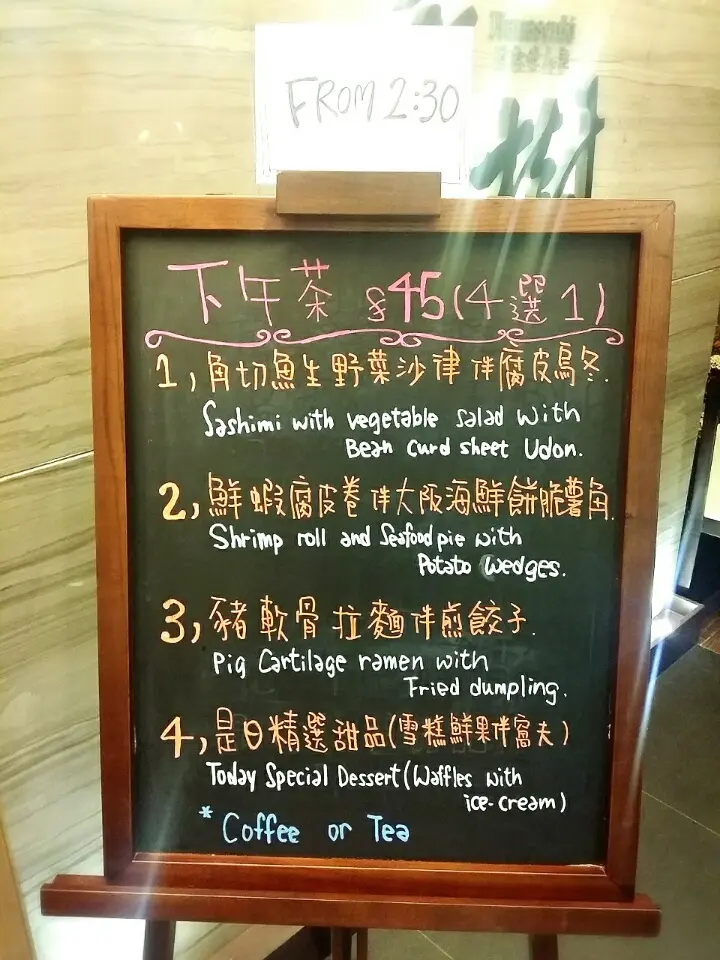 FROM 2:30
樹
下午茶 $45(4選1)
1, 角切魚生野菜沙律伴腐皮烏冬.
Sashimi with vegetable salad with
Bean curd sheet Udon.
2, 鮮蝦腐皮卷伴大阪海鮮餅脆薯角.
Shrimp roll and Seafood pie with
Potato wedges.
3, 豬軟骨拉麵伴煎餃子.
Pig Cartilage ramen with
Fried dumpling.
4, 是日精選甜品(雪糕鮮果伴窩夫)
Today Special Dessert (Waffles with
ice-cream)
* Coffee or Tea